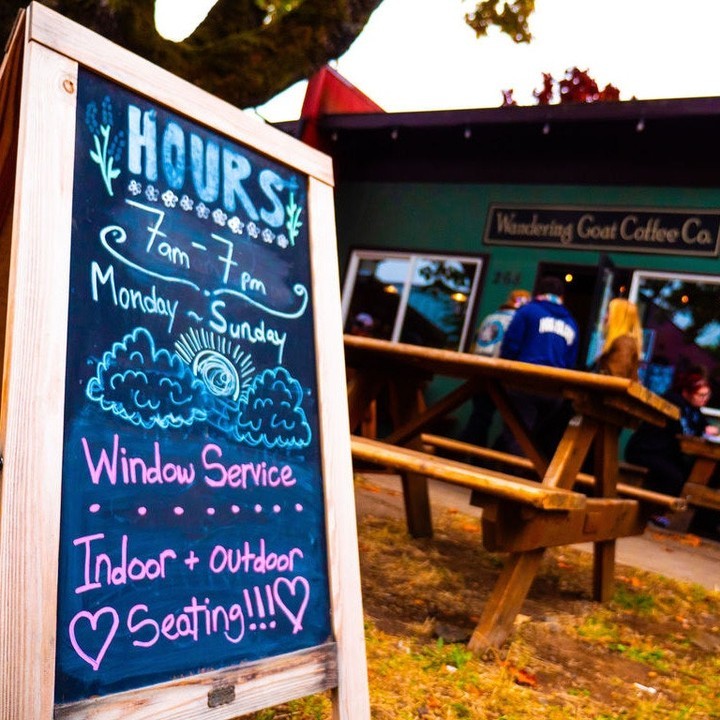 HOURS
7am - 7pm
Monday ~ Sunday
Window Service
Indoor + outdoor
Seating!!!
Wandering Goat Coffee Co.